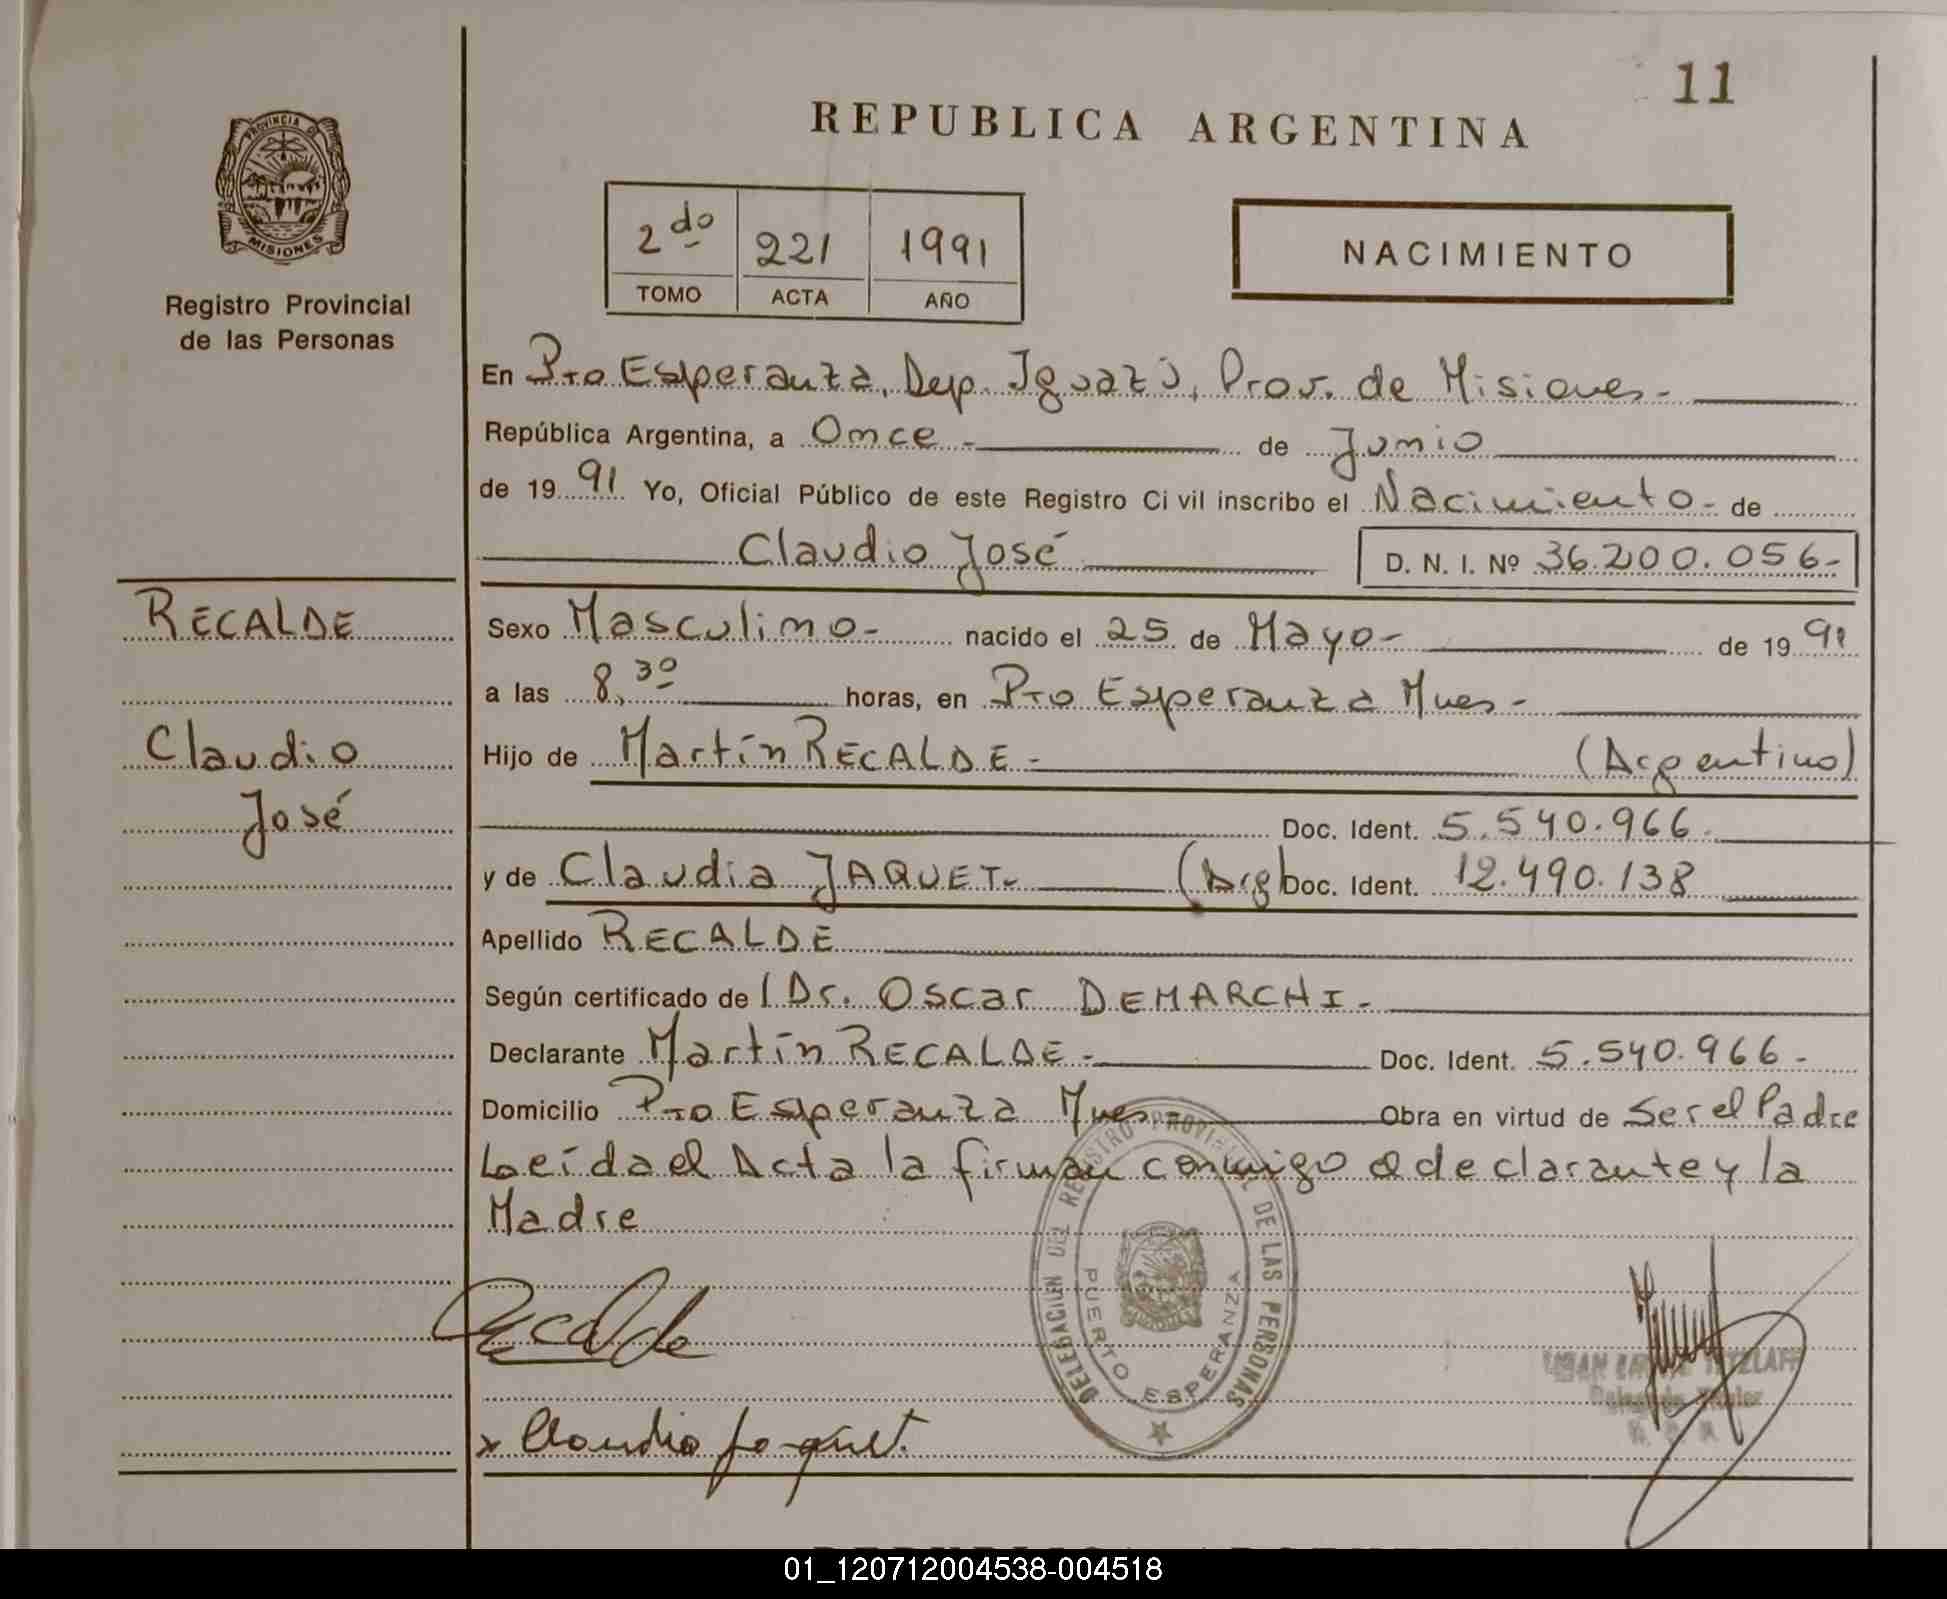 11
REPUBLICA ARGENTINA
PROVINCIA DE
MISIONES
Registro Provincial
de las Personas
2do 221 1991
TOMO ACTA AÑO
NACIMIENTO
En Pto Esperanza, Dep. Iguazú, Prov. de Misiones.-
República Argentina, a Once - de Junio
de 1991 Yo, Oficial Público de este Registro Civil inscribo el Nacimiento - de
Claudio José D. N. I. Nº 36.200.056-
RECALDE
Claudio
José
Sexo Masculino- nacido el 25 de Mayo- de 1991
a las 8,30 horas, en Pto Esperanza Mnes-
Hijo de Martín RECALDE- (Argentino)
Doc. Ident. 5.540.966.
y de Claudia JAQUET- (Arg) Doc. Ident. 12.490.138
Apellido RECALDE
Según certificado de Dr. Oscar DEMARCHI-
Declarante Martín RECALDE- Doc. Ident. 5.540.966-
Domicilio Pto Esperanza Mnes- Obra en virtud de Ser el Padre
Leída el Acta la firman conmigo el declarante y la
Madre
DELEGACION DEL REGISTRO PROVINCIAL DE LAS PERSONAS
PUERTO ESPERANZA
Recalde
x Claudia Jaquet.
Titular
01_120712004538-004518